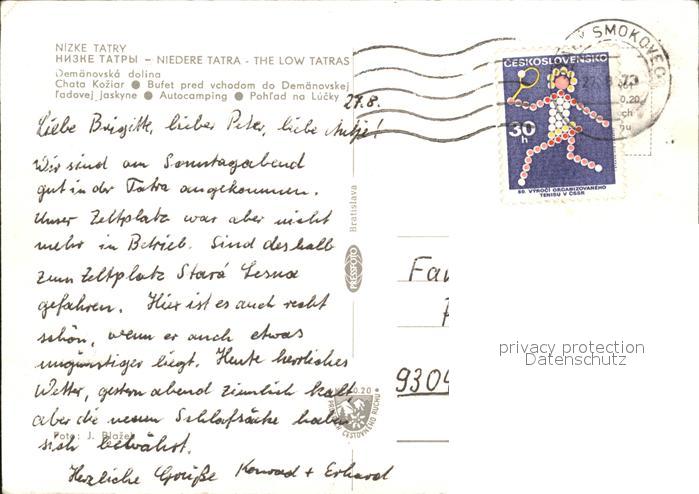 NÍZKE TATRY
НИЗКЕ ТАТРЫ – NIEDERE TATRA - THE LOW TATRAS
Demänovská dolina
Chata Kožiar ● Bufet pred vchodom do Demänovskej
ľadovej jaskyne ● Autocamping ● Pohľad na Lúčky
27.8.
Liebe Brigitte, lieber Peter, liebe Antje!
Wir sind am Sonntagabend
gut in der Tatra angekommen.
Unser Zeltplatz war aber nicht
mehr in Betrieb. Sind deshalb
zum Zeltplatz Stará Lesna
gefahren. Hier ist es auch recht
schön, wenn er auch etwas
ungünstiger liegt. Heute herrliches
Wetter, gestern abend ziemlich kalt
aber die neuen Schlafsäcke haben
sich bewährt.
Herzliche Grüße Konrad + Erhard
Foto: J. Blažek
PRESSFOTO
Bratislava
SMOKOVEC
ČESKOSLOVENSKO
30 h
80. VÝROČÍ ORGANIZOVANÉHO
TENISU V ČSSR
Fa
9304
privacy protection
Datenschutz